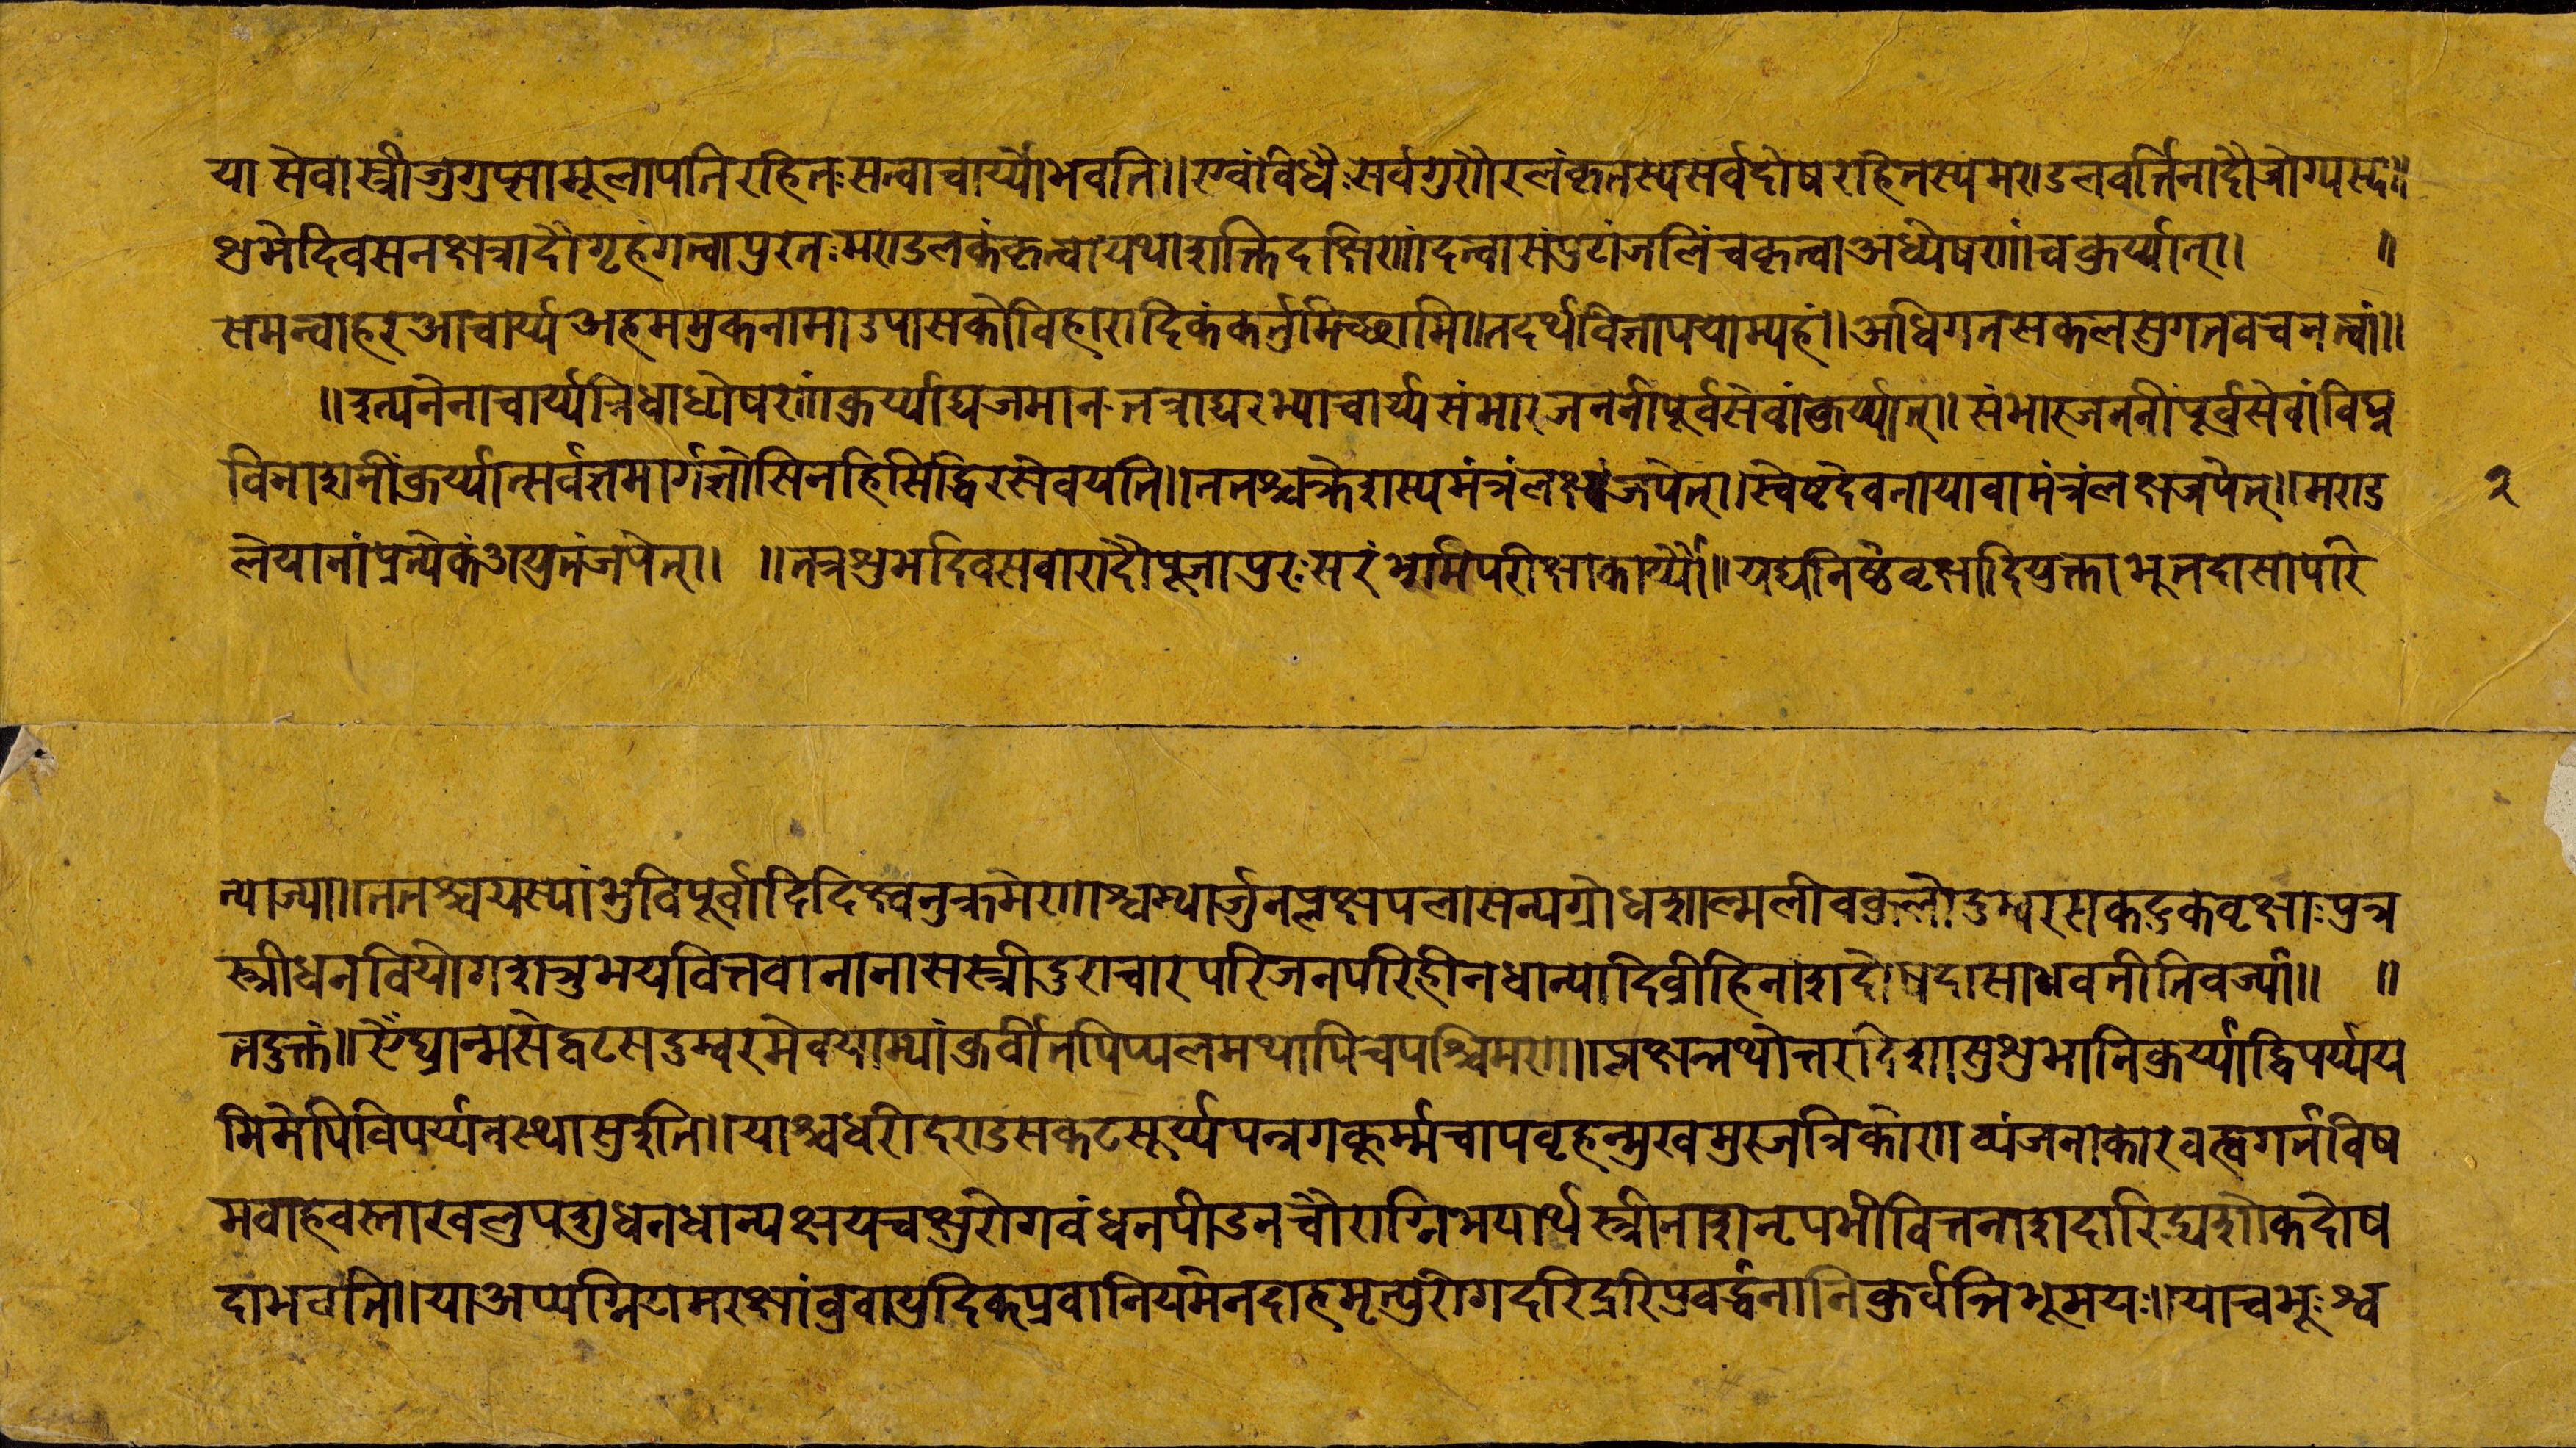 या सेवा स्त्रीजुगुप्सामूलापतिरहितःसत्वाचार्य्योभवति॥एवंविधैःसर्वगुणैरलंकृतस्यसर्वदोषरहितस्यमण्डलवर्त्तिनादौजोग्यस्य॥
शुभेदिवसनक्षत्रादौगृहंगत्वापुरतःमण्डलकंकृत्वायथाशक्तिदक्षिणांदत्वासंपुटांजलिंचकृत्वाअध्येषणांचकुर्य्यात्। ॥
समन्वाहरआचार्य्यअहममुकनामाउपासकोविहारादिकंकर्तुमिच्छामि॥तदर्थविज्ञापयाम्यहं॥अधिगतसकलसुगतवचनत्वां॥
॥इत्यनेनाचार्य्यन्निधाधेषणांकुर्य्याद्यजमानःतत्राद्यरभ्याचार्य्यसंभारजननीपूर्वसेवांकुर्य्यात्॥संभारजननींपूर्वसेवांविघ्न
विनाशनींकुर्य्यात्सर्वज्ञमार्गज्ञोसिनहिसिद्धिरसेवयति॥ततश्चक्रेशस्यमंत्रंलक्षंजपेत्॥स्वेष्टदेवतायावामंत्रंलक्षजपेत्॥मण्ड २
लेयानांप्रत्येकंअयुतंजपेत्॥ ॥तत्रशुभदिवसवारादौपूजापुरःसरंभूमिपरीक्षाकार्य्या॥यद्यनिष्ठवृक्षादियुक्ताभूतदासापरि
त्याज्या॥ततश्चयस्यांभुविपूर्वादिदिक्ष्वनुक्रमेणाश्वथार्जुनप्लक्षपलासन्यग्रोधशाल्मलीवकुलोदुम्वरसकदुकवृक्षाःपुत्र
स्त्रीधनवियोगशत्रुभयवित्तवानानासस्त्रीदुराचारपरिजनपरिहीनधान्यादिव्रीहिनाशदोषदासाभवनीनिवर्ज्या॥ ॥
तदुक्तं॥ऐंघ्रान्मसेद्वटसदुम्वरमेवयाम्यांकुर्वीतपिप्पलमथापिचपश्चिमण॥प्लक्षन्तथोत्तरदिशासुशुभानिकुर्य्याद्विपर्य्यय
मिमेपिविपर्य्यतस्थासुइति॥याश्चधरीदण्डसकटसूर्य्यपन्नगकूर्म्मचापवृहन्मुखमुरजत्रिकोणव्यंजनाकारवत्स्वगर्तविष
मवाहवस्ताखलुपशुधनधान्यक्षयचक्षुरोगवंधनपीडनचौराग्निभयार्थस्त्रीनाशनृपभीवित्तनाशदारिद्र्यशोकदोष
दाभवन्ति॥याअप्यग्नियमरक्षांवुवायुदिक्प्लवानियमेनदाहमृत्युरोगदरिद्ररिपुवर्द्धनानिकुर्वन्तिभूमयः॥याचभूःश्व